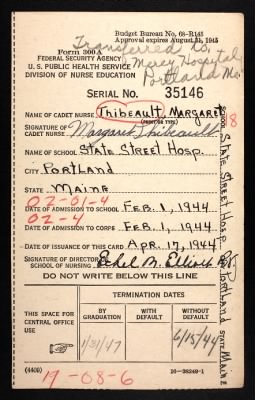 Budget Bureau No. 68-R141
Approval expires August 31, 1945
Transferred to
Mercy Hospital
Portland Me.
Form 300A
FEDERAL SECURITY AGENCY
U. S. PUBLIC HEALTH SERVICE
DIVISION OF NURSE EDUCATION
SERIAL NO. 35146
NAME OF CADET NURSE Thibeault, Margaret
(PRINT OR TYPE)
SIGNATURE OF CADET NURSE Margaret Thibeault
NAME OF SCHOOL State Street Hosp.
CITY Portland
STATE Maine
02-01-4
DATE OF ADMISSION TO SCHOOL Feb. 1, 1944
02-4
DATE OF ADMISSION TO CORPS Feb. 1, 1944
DATE OF ISSUANCE OF THIS CARD Apr. 17, 1944
SIGNATURE OF DIRECTOR SCHOOL OF NURSING Ethel B. Elliott R.N.
DO NOT WRITE BELOW THIS LINE
THIS SPACE FOR CENTRAL OFFICE USE
TERMINATION DATES
BY GRADUATION
WITH DEFAULT
WITHOUT DEFAULT
1/31/47
6/15/44
(4400)
16-38249-1
19-08-6
SCHOOL STATE STREET HOSP. CITY PORTLAND STATE MAINE